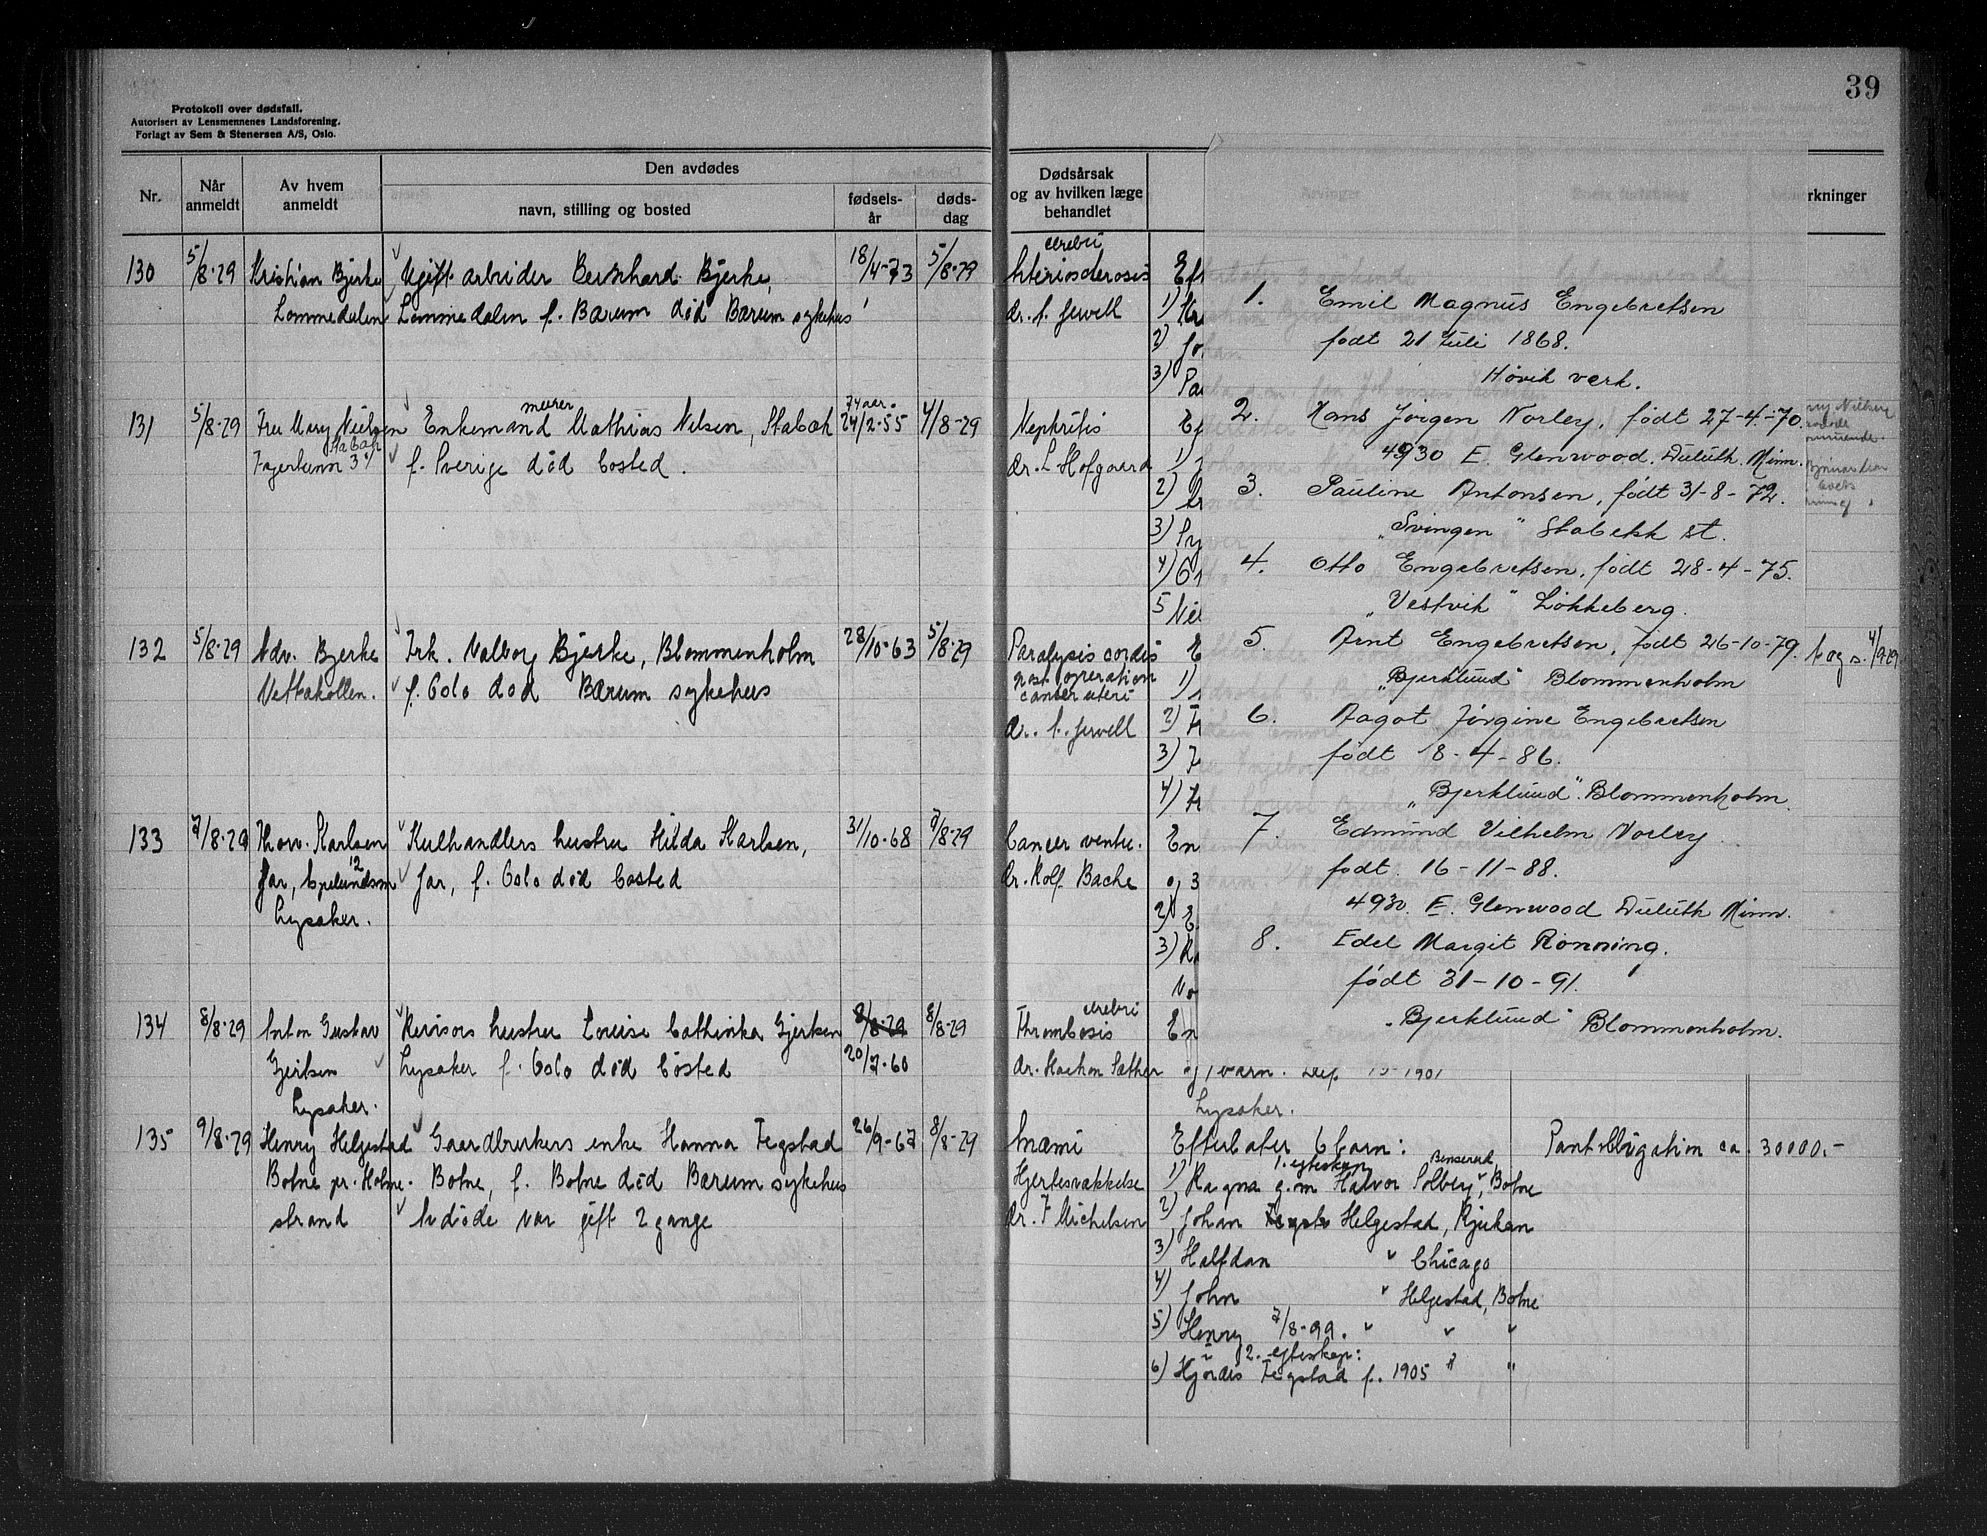 39
Protokoll over dødsfall.
Autorisert av Lensmennenes Landsforening.
Forlagt av Sem & Stenersen A/S, Oslo.
Nr.
Når anmeldt
Av hvem anmeldt
Den avdødes
navn, stilling og bosted
fødsels-år
døds-dag
Dødsårsak og av hvilken læge behandlet
rkninger
130 5/8-29 Kristian Bjerke Ugift arbeider Bernhard Bjerke, 18/4-73 5/8-29 Arteriosclerosis cerebri
Lommedalen Lommedalen f. Bærum død Bærum sykehus dr. f. Jervell 1)
2)
3)
131 5/8-29 Fru Mary Nielsen Enkemand murer Mathias Nilsen, Stabæk 74 aar. 24/2-55 4/8-29 Nephritis
Stabæk f. Sverige død bosted. dr. L Hofgaard 1)
2)
3)
4)
5
132 5/8-29 Adv. Bjerke Frk. Valborg Bjerke, Blommenholm 28/10-63 5/8-29 Paralysis cordis
Vettakollen. f. Oslo død Bærum sykehus post operation 1)
cancer uteri
dr. f. Jervell 2)
3)
4)
133 7/8-29 Thorv. Karlsen Kulhandlers hustru Hilda Karlsen, 31/10-68 7/8-29 Cancer ventr.
Jar, Jar, f. Oslo død bosted dr. Rolf Bache
Lysaker. 2)
3)
134 8/8-29 Anton Gustav Revisors hustru Louise Cathinka Gjertsen 8/8-29 8/8-29 Thrombosis cerebri
Gjertsen Lysaker f. Oslo død bosted 20/7-60 dr. Haakon Sæther
Lysaker.
1901
Lysaker.
135 9/8-29 Henry Helgestad Gaardbrukers enke Hanna Fegstad 26/9-67 8/8-29 Anæmi Efterlater 6 barn: Pantobligation ca. 30000.-
Botne pr. Holme- Botne, f. Botne død Bærum sykehus Hjertesvækkelse 1) Ragna g.m. Halvor Solberg, Botne
strand Avdøde var gift 2 gange dr. F Michelsen 2) Johan Helgestad, Rjukan
3) Halfdan " Chicago
4) John " Helgestad, Botne
5) Henry 7/8-99. " " "
2. egteskap:
6) Hjørdis Fegstad f. 1905 " "
1. Emil Magnus Engebretsen
født 21 Juli 1868.
Høvik verk.
2. Hans Jørgen Norley, født 27-4-70.
4930 E. Glenwood. Duluth. Minn.
3. Pauline Antonsen, født 31-8-72.
"Svingen" Stabekk st.
4. Otto Engebretsen, født 28-4-75.
"Vestvik" Løkkeberg.
5. Arnt Engebretsen, født 26-10-79.
"Bjerklund" Blommenholm
6. Aagot Jørgine Engebretsen
født 8-4-86.
"Bjerklund". Blommenholm.
7. Edmund Vilhelm Norley.
født. 16-11-88.
4930. E. Glenwood Duluth Minn.
8. Edel Margit Rønning.
født 31-10-91.
"Bjerklund" Blommenholm.